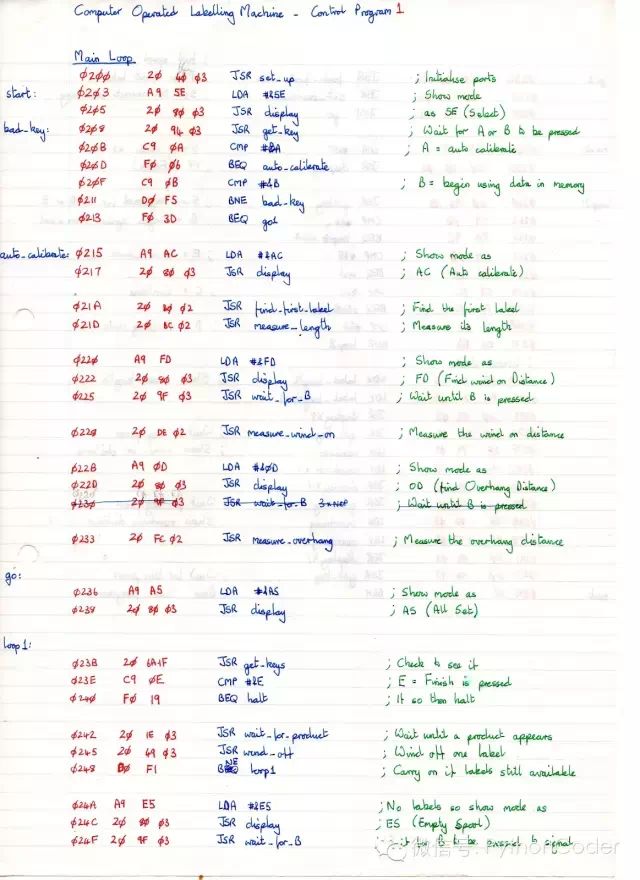 Computer Operated Labelling Machine - Control Program 1
Main Loop
0200 20 40 03 JSR set_up ; Initialise ports
start: 0203 A9 5E LDA #&5E ; Show mode
0205 20 80 03 JSR display ; as 5E (Select)
bad_key: 0208 20 94 03 JSR get_key ; Wait for A or B to be pressed
020B C9 0A CMP #&A ; A = auto calibrate
020D F0 06 BEQ auto_calibrate
020F C9 0B CMP #&B ; B = begin using data in memory
0211 D0 F5 BNE bad_key
0213 F0 3D BEQ go1
auto_calibrate: 0215 A9 AC LDA #&AC ; Show mode as
0217 20 80 03 JSR display ; AC (Auto calibrate)
021A 20 02 JSR find_first_label ; Find the first label
021D 20 BC 02 JSR measure_length ; Measure its length
0220 A9 FD LDA #&FD ; Show mode as
0222 20 80 03 JSR display ; FD (Find wind on Distance)
0225 20 9F 03 JSR wait_for_B ; Wait until B is pressed
0228 20 DE 02 JSR measure_wind_on ; Measure the wind on distance
022B A9 0D LDA #&0D ; Show mode as
022D 20 80 03 JSR display ; OD (find Overhang Distance)
0230 20 9F 03 JSR wait_for_B 3xNOP ; Wait until B is pressed
0233 20 FC 02 JSR measure_overhang ; Measure the overhang distance
go:
0236 A9 A5 LDA #&A5 ; Show mode as
0238 20 80 03 JSR display ; AS (All Set)
loop1:
023B 20 6A 1F JSR get_keys ; Check to see if
023E C9 0E CMP #&E ; E = Finish is pressed
0240 F0 19 BEQ halt ; If so then halt
0242 20 1E 03 JSR wait_for_product ; Wait until a product appears
0245 20 69 03 JSR wind_off ; Wind off one label
0248 D0 F1 BNE loop1 ; Carry on if labels still available
024A A9 E5 LDA #&E5 ; No labels so show mode as
024C 20 80 03 JSR display ; ES (Empty Spool)
024F 20 9F 03 JSR wait_for_B for B to be pressed to signal
微信号: PythonCoder